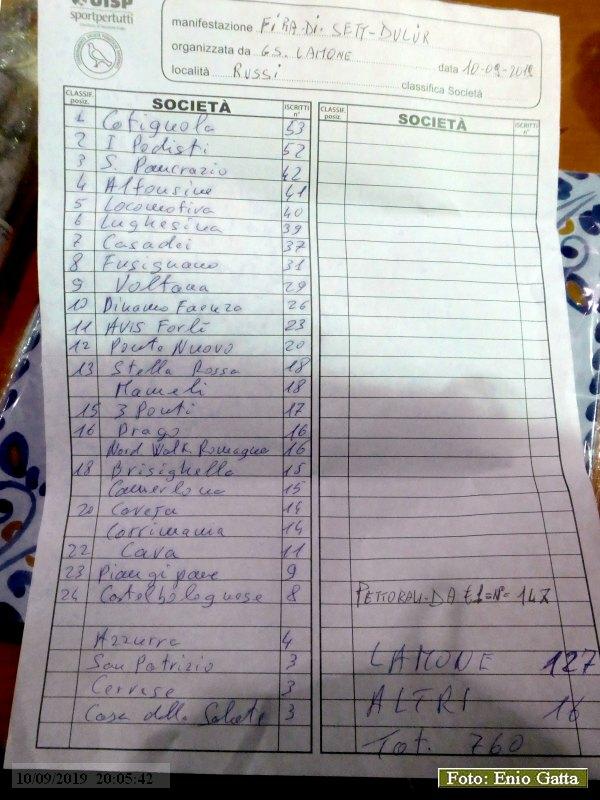 UISP
sportpertutti
manifestazione FIRA-DI-SETT-DULUR
organizzata da G.S. LAMONE data 10-09-2019
località RUSSI classifica Società
CLASSIF. posiz. SOCIETÀ ISCRITTI n°
1 Cotignola 53
2 I Podisti 52
3 S. Pancrazio 42
4 Alfonsine 41
5 Locomotiva 40
6 Lughesina 39
7 Casadei 37
8 Fusignano 31
9 Voltana 29
10 Dinamo Faenza 26
11 AVIS Forlì 23
12 Ponte Nuovo 20
13 Stella Rossa 18
Mameli 18
15 3 Ponti 17
16 Drago 16
Nord Walk. Romagna 16
18 Brisighella 15
Camerlona 15
20 Covefo 14
Corrimania 14
22 Cava 11
23 Piangipane 9
24 Castelbolognese 8
Azzurra 4
San Patrizio 3
Cervese 3
Casa della Salute 3
CLASSIF. posiz. SOCIETÀ ISCRITTI n°
PETTORALI-DA €1=N°= 147
LAMONE 127
ALTRI 16
Tot. 760
10/09/2019 20:05:42
Foto: Enio Gatta